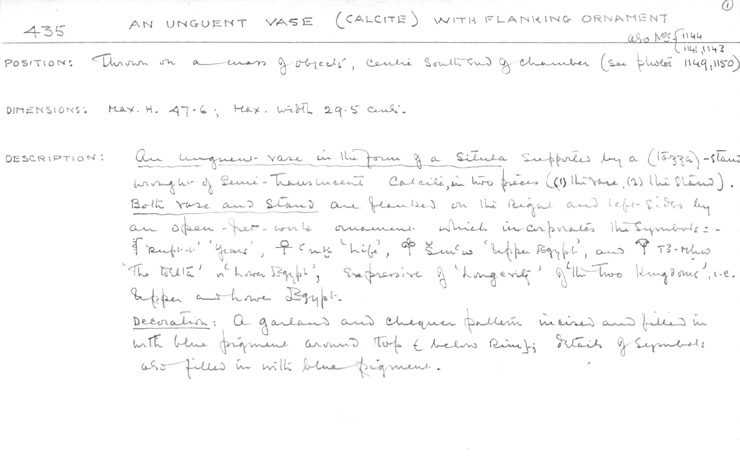 ①
435 AN UNGUENT VASE (CALCITE) WITH FLANKING ORNAMENT
also Nos { 1144
1141, 1143
POSITION: Thrown on a mass of objects, centre South End of chamber (see photos 1149, 1150)
DIMENSIONS: Max. H. 47·6; Max. width 29·5 cents.
DESCRIPTION: An unguent-vase in the form of a Situla supported by a (Tazza)-stand
wrought of Semi-Translucent Calcite, in two pieces ((1) the vase, (2) the stand).
Both vase and Stand are flanked on the Right and left-sides by
an open-fret-work ornament which incorporates the Symbols:-
'years', 'life', 'Upper Egypt', and T3-Mhw
'The Delta' or 'Lower Egypt'; Expressive of 'Longevity' of 'the Two Kingdoms', i.e.
Upper and Lower Egypt.
Decoration: A garland and chequer pattern incised and filled in
with blue pigment around Top (below Rim); details of Symbols
also filled in with blue pigment.